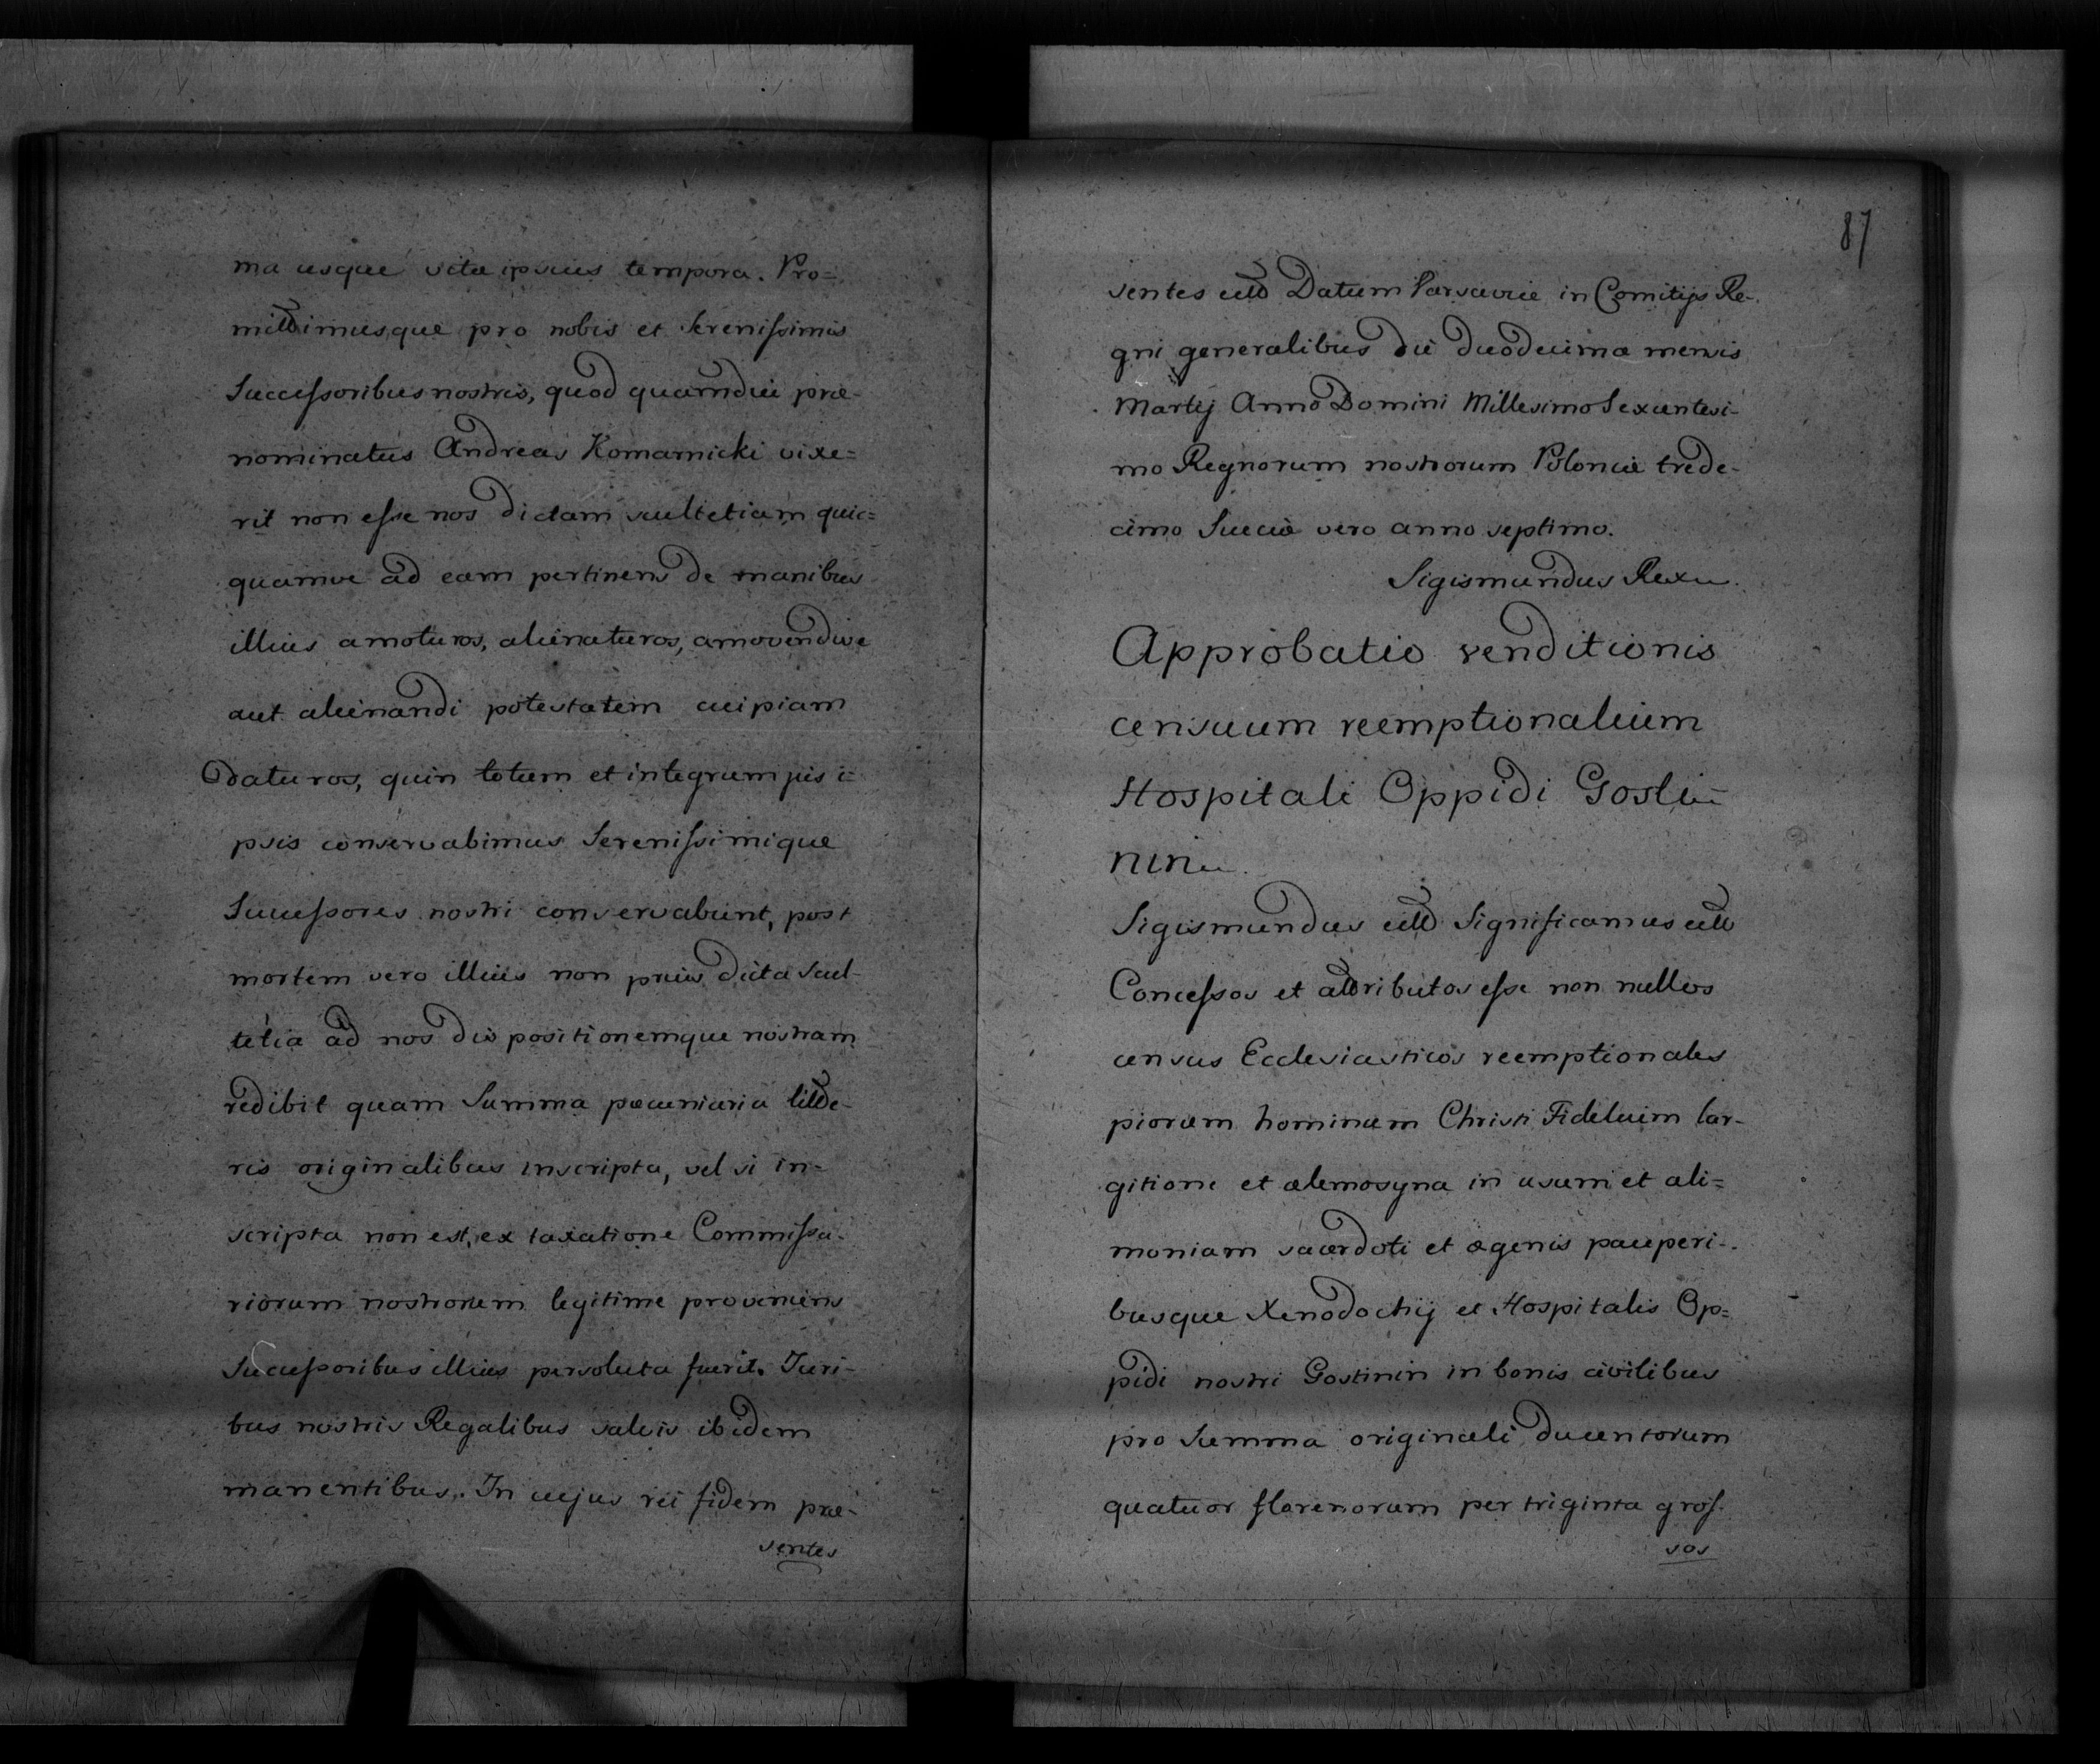 ma usque vitæ ipsius tempora. Pro=
mittimusque pro nobis et Serenissimis
Successoribus nostris, quod quamdiu præ-
nominatus Andreas Komarnicki vixe=
rit non esse nos dictam scultetiam quic=
quamve ad eam pertinens de manibus
illius amoturos, alienaturos, amovendive
aut alienandi potestatem cuipiam
daturos, quin totum et integrum jus i=
psis conservabimus Serenissimique
Successores nostri conservabunt, post
mortem vero illius non prius dicta scul-
tetia ad nos dispositionemque nostram
redibit quam Summa pæcuniaria litte-
ris originalibus inscripta, vel si in=
scripta non est, ex taxatione Commissa-
riorum nostrorum legitime proveniens
Successoribus illius persoluta fuerit. Juri-
bus nostris Regalibus salvis ibidem
manentibus. In cujus rei fidem præ-
sentes
87
sentes ett Datum Varsaviæ in Comitijs Re-
gni generalibus die duodecima mensis
Martij Anno Domini Millesimo Sexcentesi-
mo Regnorum nostrorum Poloniæ trede-
cimo Sueciæ vero anno septimo.
Sigismundus Rex
Approbatio venditionis
censuum reemptionalium
Hospitali Oppidi Gosti=
nin
Sigismundus ett Significamus ett
Concessos et attributos esse non nullos
census Ecclesiasticos reemptionales
piorum hominum Christi Fidelium lar-
gitione et alemosyna in usum et ali=
moniam sacerdoti et ægenis pauperi-
busque Xenodochij et Hospitalis Op=
pidi nostri Gostinin in bonis civilibus
pro Summa originali ducentorum
quatuor florenorum per triginta gros-
sos